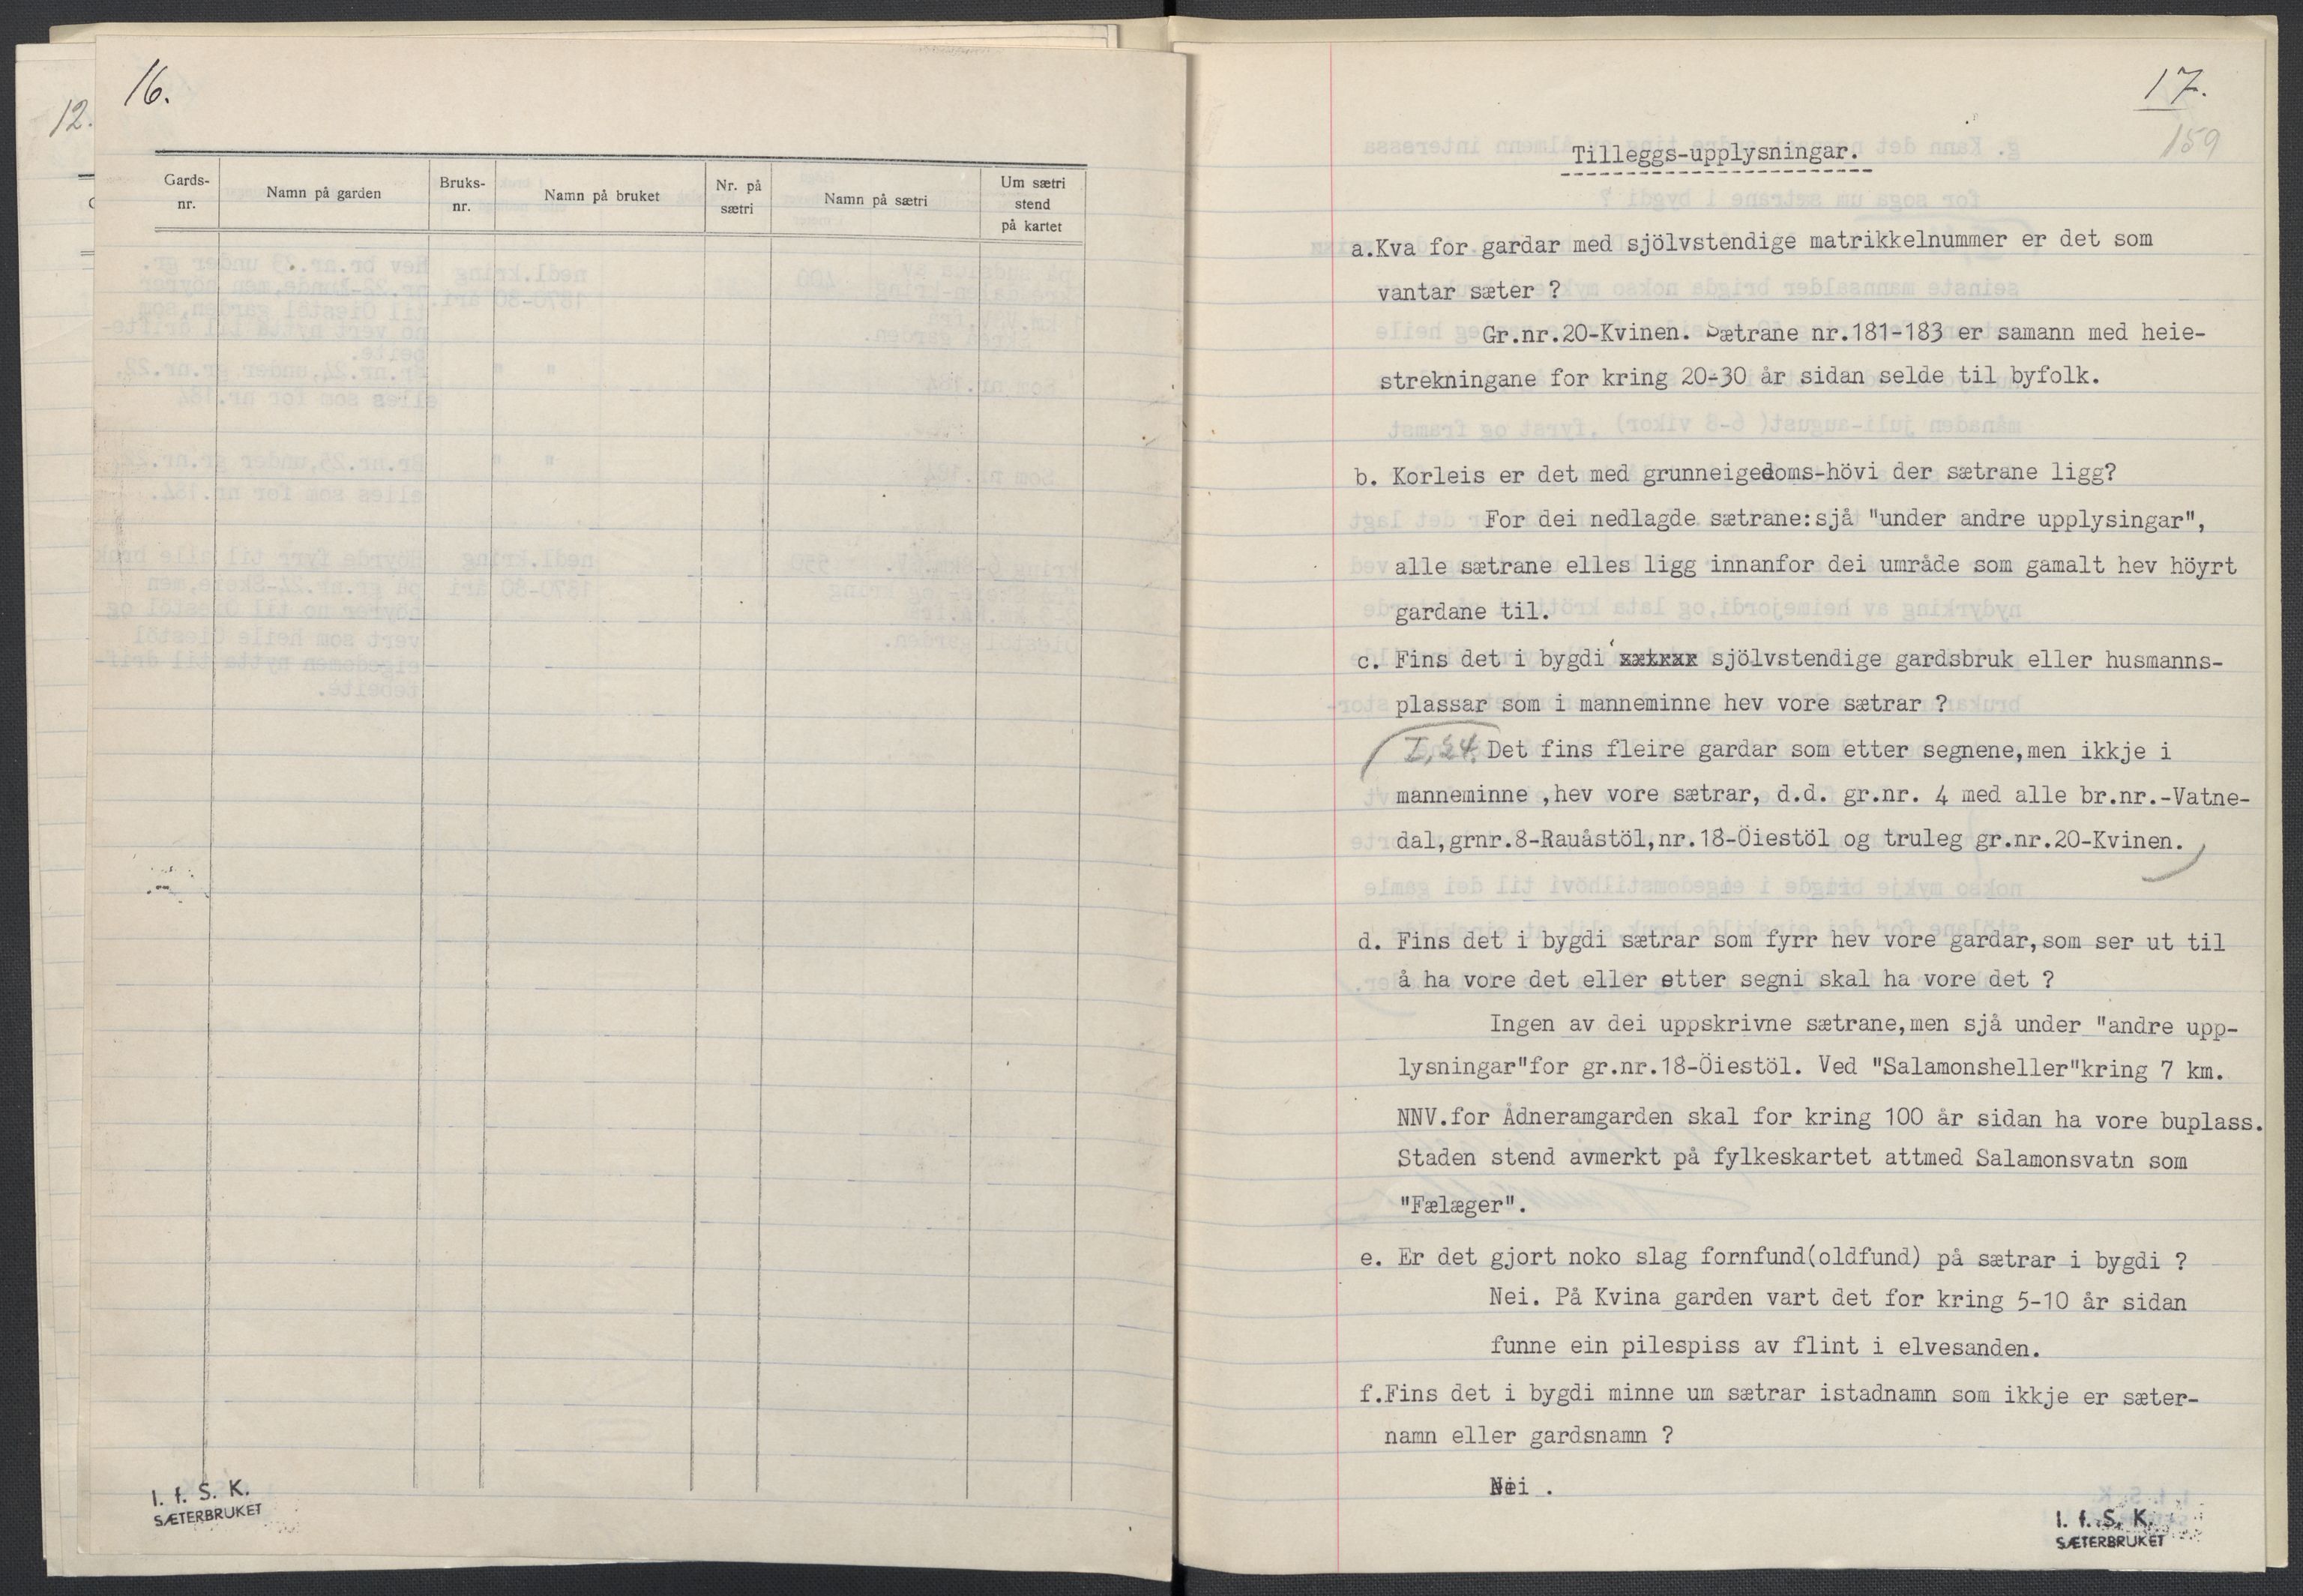 12.
16.
Gards-
nr.
Namn på garden
Bruks-
nr.
Namn på bruket
Nr. på
sætri
Namn på sætri
Um sætri
stend
på kartet
I. f. S. K.
SÆTERBRUKET
17.
159
Tilleggs-upplysningar.
a.Kva for gardar med sjölvstendige matrikkelnummer er det som
vantar sæter ?
Gr.nr.20-Kvinen. Sætrane nr.181-183 er samann med heie-
strekningane for kring 20-30 år sidan selde til byfolk.
b. Korleis er det med grunneigedoms-hövi der sætrane ligg?
For dei nedlagde sætrane:sjå "under andre upplysingar",
alle sætrane elles ligg innanfor dei umråde som gamalt hev höyrt
gardane til.
c. Fins det i bygdi sjölvstendige gardsbruk eller husmanns-
plassar som i manneminne hev vore sætrar ?
I, 24. Det fins fleire gardar som etter segnene,men ikkje i
manneminne ,hev vore sætrar, d.d. gr.nr. 4 med alle br.nr.-Vatne-
dal,grnr.8-Rauåstöl,nr.18-Öiestöl og truleg gr.nr.20-Kvinen.
d. Fins det i bygdi sætrar som fyrr hev vore gardar,som ser ut til
å ha vore det eller etter segni skal ha vore det ?
Ingen av dei uppskrivne sætrane,men sjå under "andre upp-
lysningar"for gr.nr.18-Öiestöl. Ved "Salamonsheller"kring 7 km.
NNV.for Ådneramgarden skal for kring 100 år sidan ha vore buplass.
Staden stend avmerkt på fylkeskartet attmed Salamonsvatn som
"Fælæger".
e. Er det gjort noko slag fornfund(oldfund) på sætrar i bygdi ?
Nei. På Kvina garden vart det for kring 5-10 år sidan
funne ein pilespiss av flint i elvesanden.
f.Fins det i bygdi minne um sætrar istadnamn som ikkje er sæter-
namn eller gardsnamn ?
Nei .
I. f. S. K.
SÆTERBRUKET